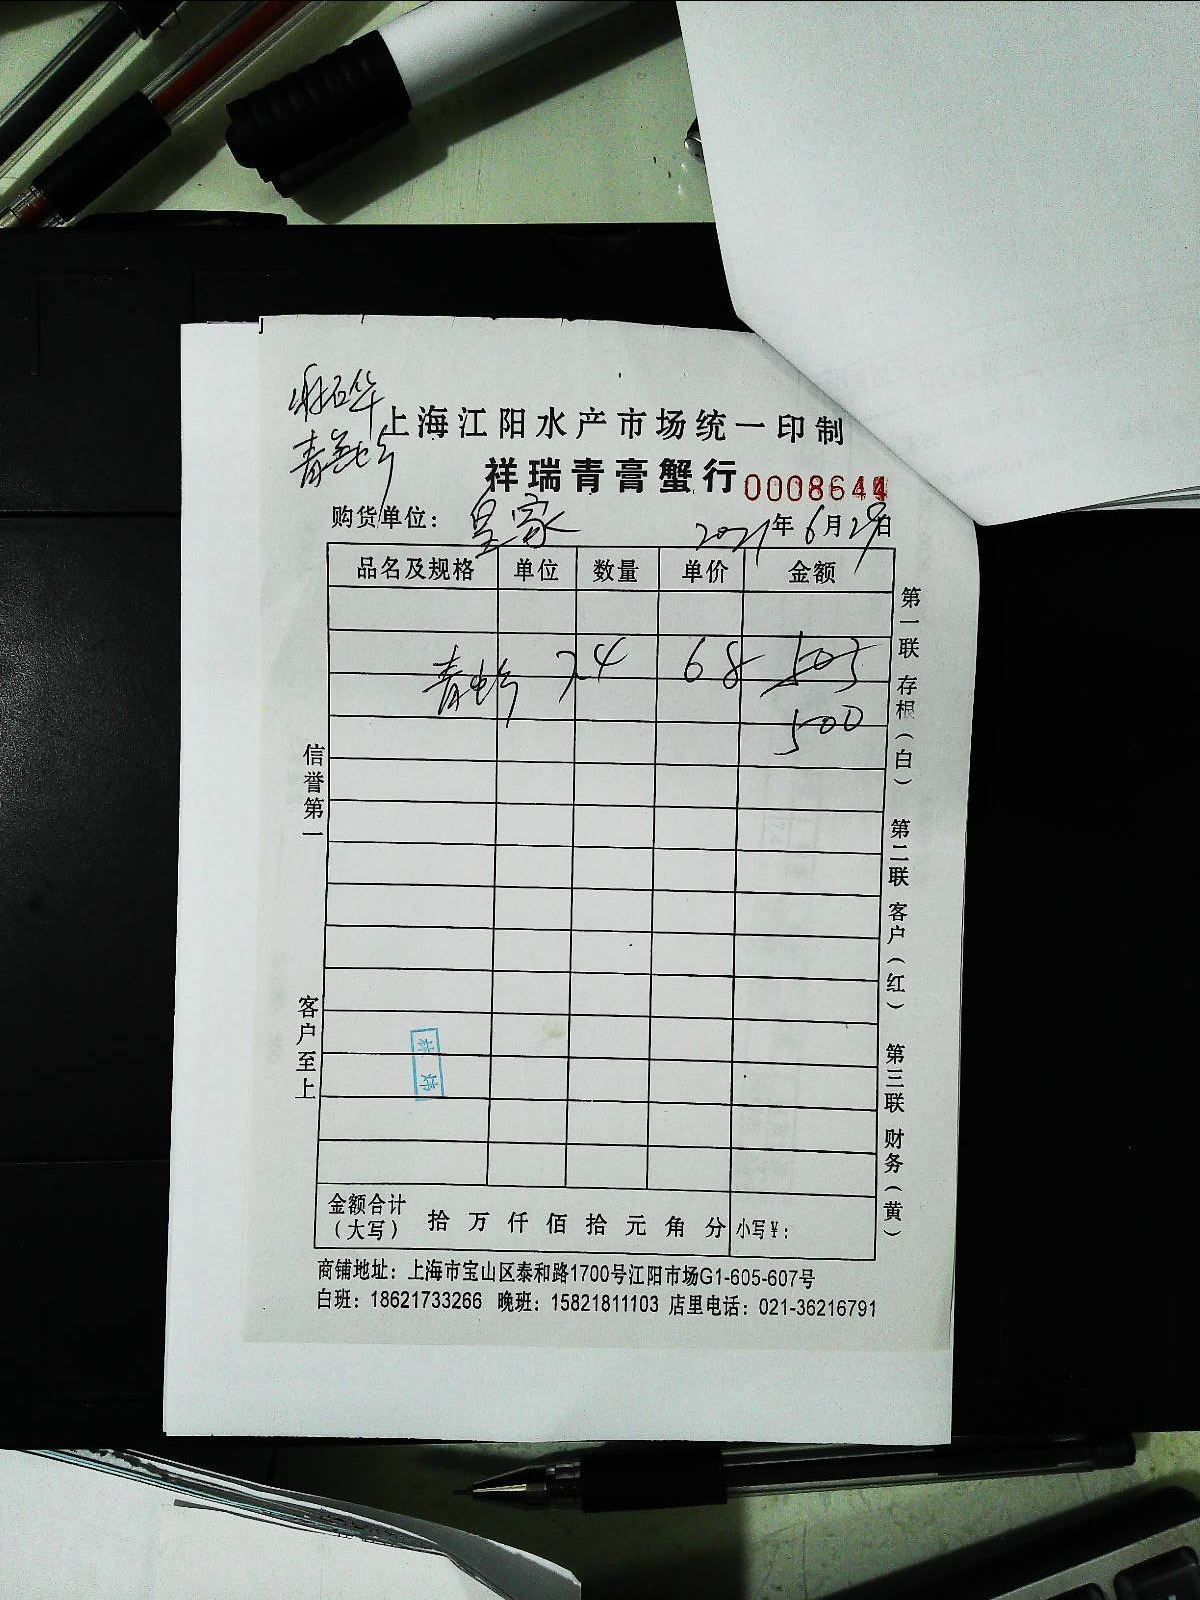 上海江阳水产市场统一印制
祥瑞青膏蟹行 0008644
购货单位： 皇家 2021年6月29日
品名及规格 单位 数量 单价 金额
7.4 68 503
500
信誉第一
客户至上
第一联 存根（白） 第二联 客户（红） 第三联 财务（黄）
金额合计（大写） 拾 万 仟 佰 拾 元 角 分 小写¥：
商铺地址：上海市宝山区泰和路1700号江阳市场G1-605-607号
白班：18621733266 晚班：15821811103 店里电话：021-36216791